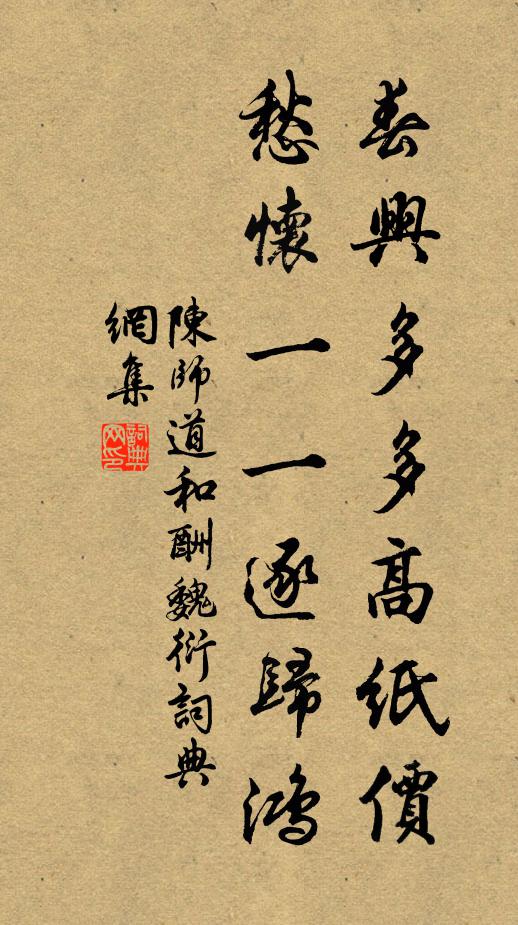 春興多多高紙價
愁懷一一逐歸鴻
陳師道和酬魏衍詞典
網集
詞典網印